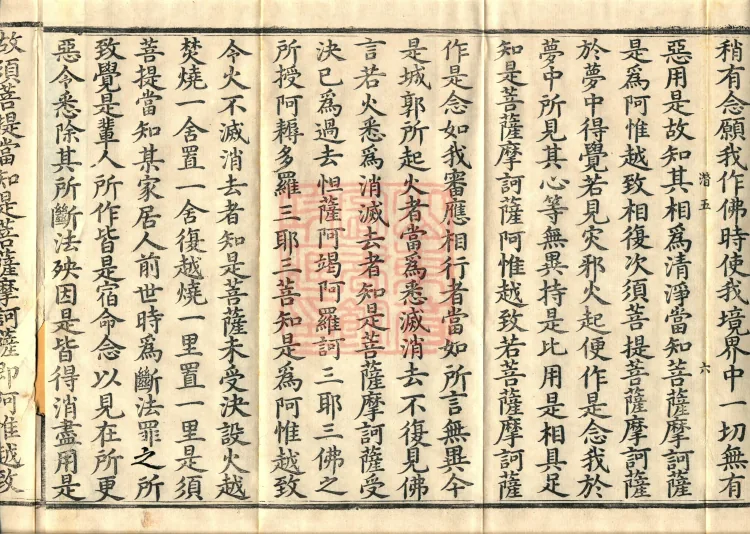 稍有念願我作佛時使我境界中一切無有
惡用是故知其相爲清淨當知菩薩摩訶薩
潛五
六
是爲阿惟越致相復次須菩提菩薩摩訶薩
於夢中得覺若見灾邪火起便作是念我於
夢中所見其心等無異持是比用是相具足
知是菩薩摩訶薩阿惟越致若菩薩摩訶薩
作是念如我審應相行者當如所言無異今
是城郭所起火者當爲悉滅消去不復見佛
言若火悉爲消滅去者知是菩薩摩訶薩受
決已爲過去怛薩阿竭阿羅訶三耶三佛之
所授阿耨多羅三耶三菩知是爲阿惟越致
今火不滅消去者知是菩薩未受決設火越
焚燒一舍置一舍復越燒一里置一里是須
菩提當知某家居人前世時爲斷法罪之所
致覺是輩人所作皆是宿命念以見在所更
惡令悉除其所斷法殃因是皆得消盡用是
故須菩提當知是菩薩摩訶薩即阿惟越致